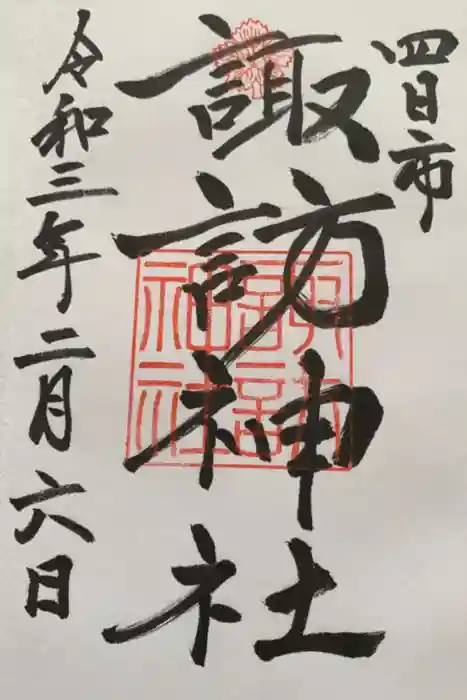 四日市
諏訪神社
令和三年二月六日
諏訪
神社